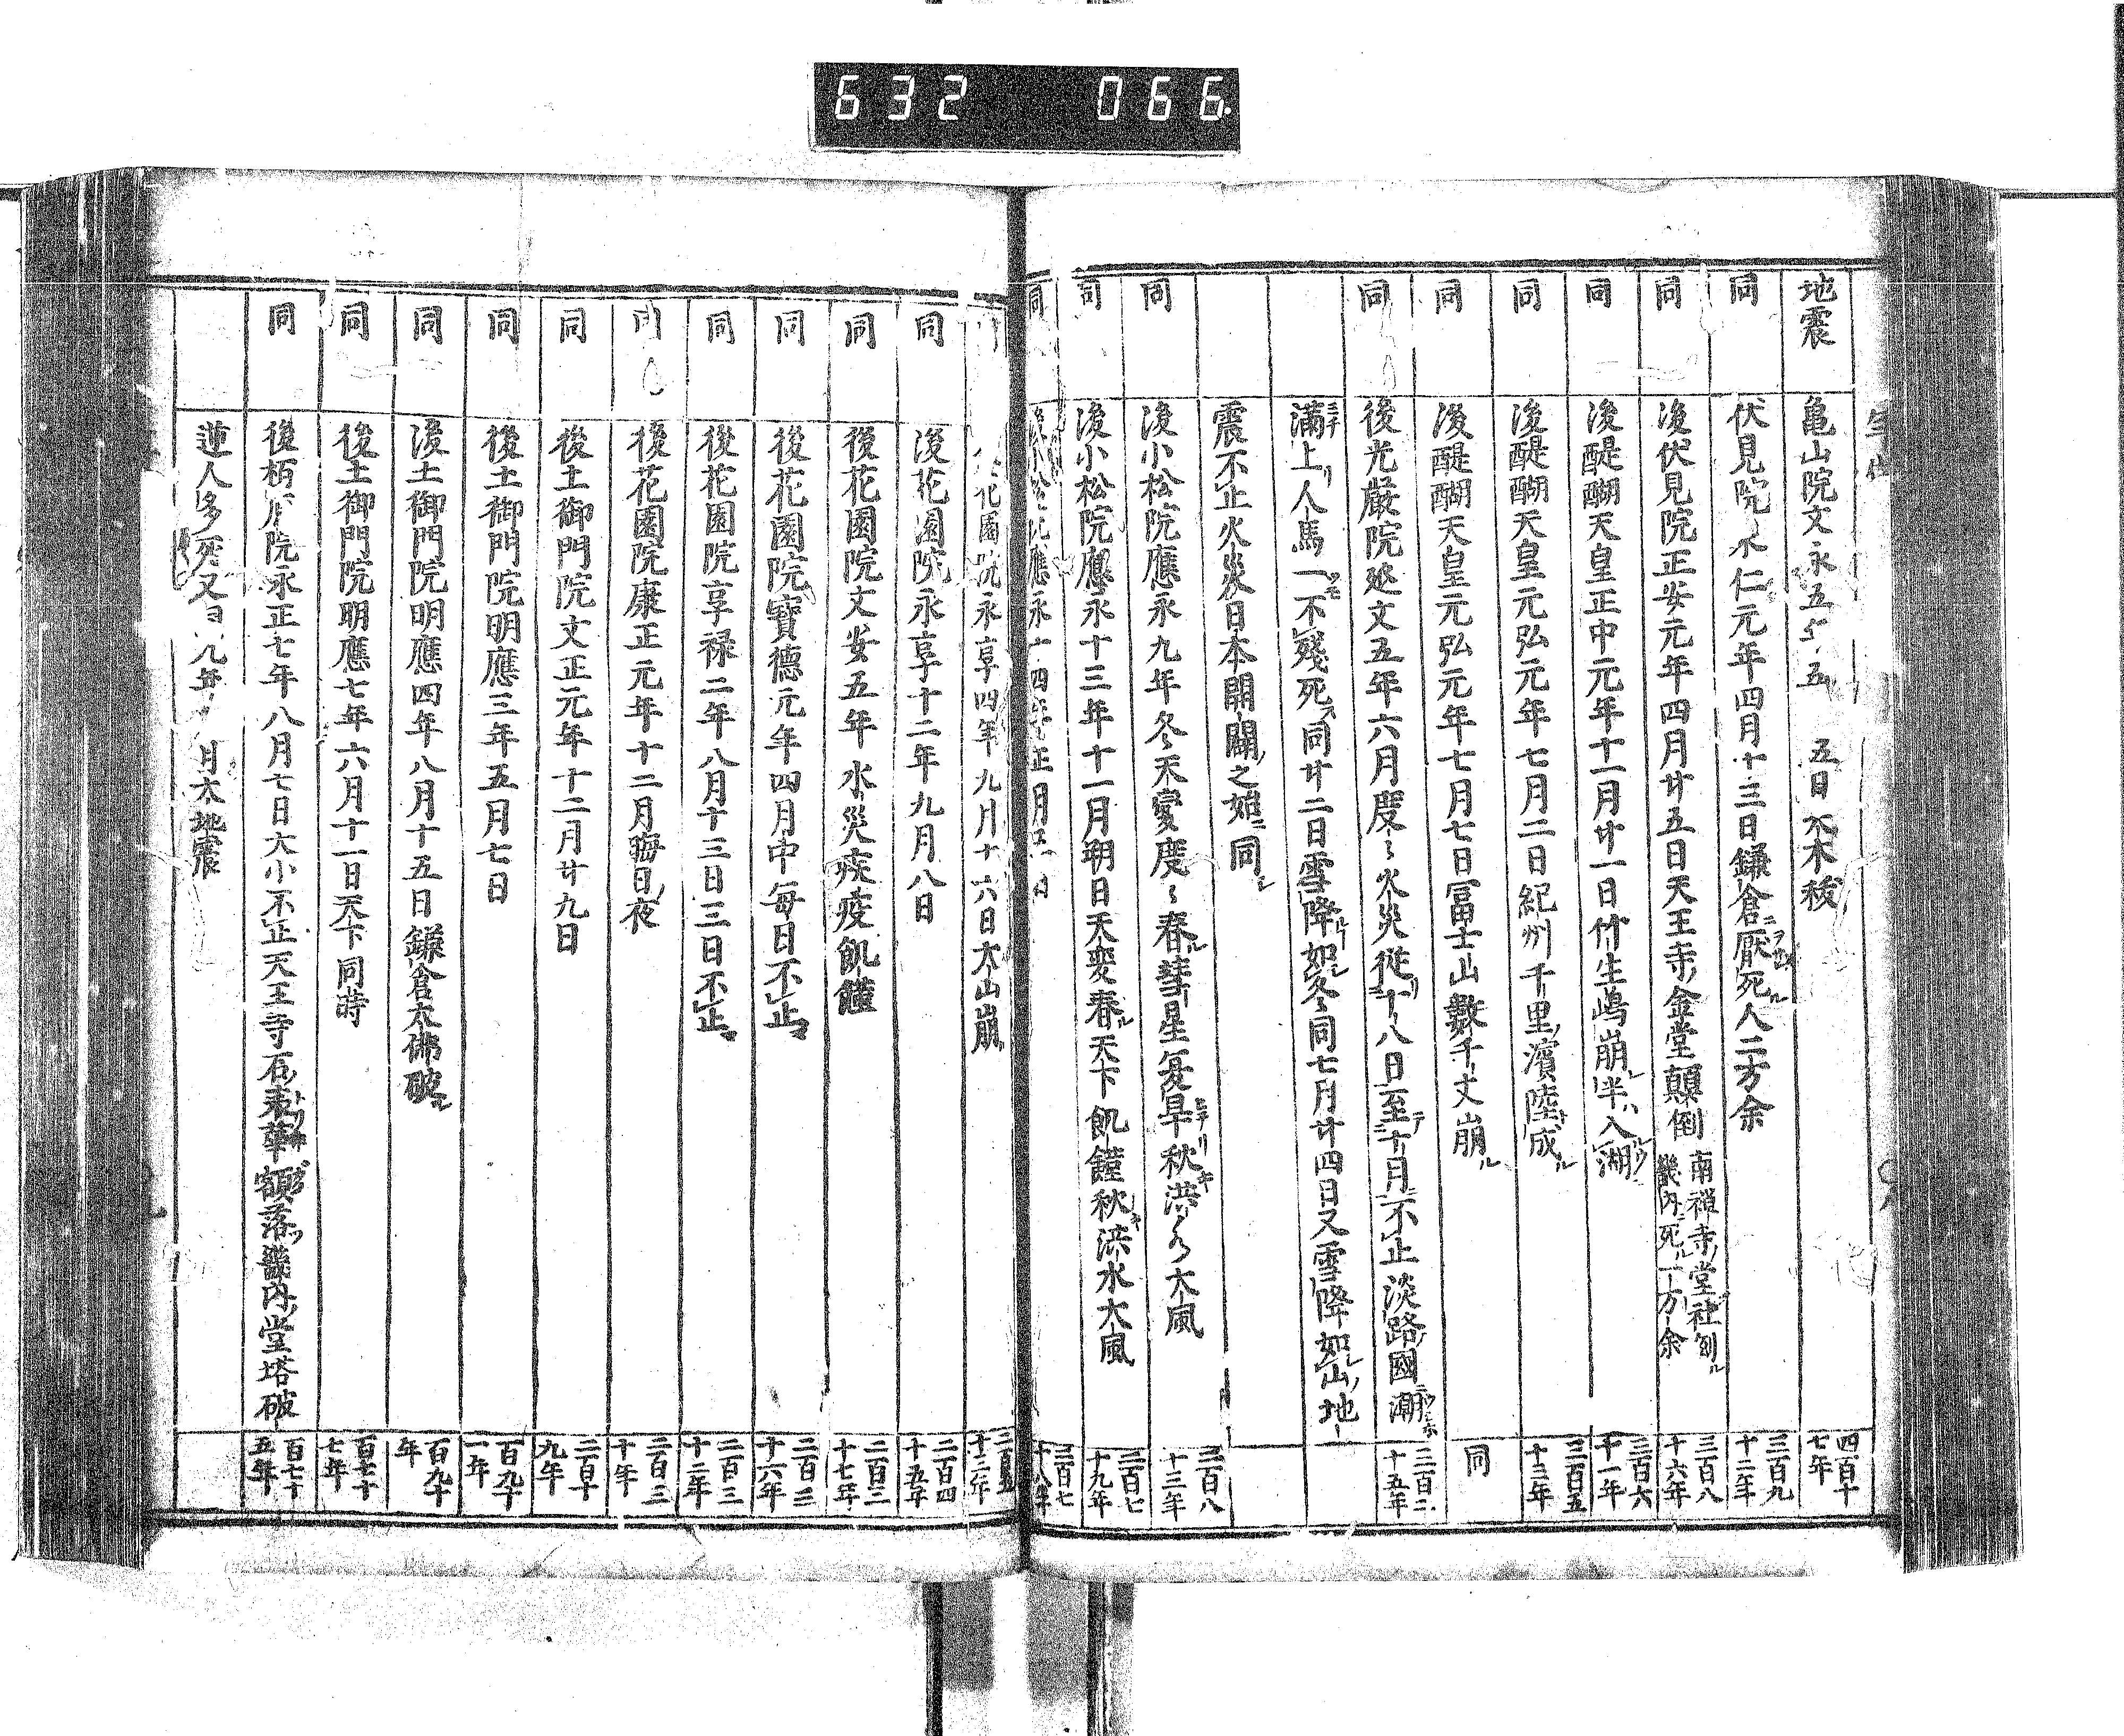 632 066
地震 亀山院文永五年五 五日 大木祾 四百十七年
同 伏見院永仁元年四月十三日鎌倉ニ厭死ル人二万余 三百九十二年
同 後伏見院正安元年四月廿五日天王寺金堂顛倒 南禅寺ノ堂社倒ル 畿内ニ死ル一万余 三百八十六年
同 後醍醐天皇正中元年十一月廿一日竹生嶋崩ル半ハ入ル湖ウミ 三百六十一年
同 後醍醐天皇元弘元年七月二日紀州千里ノ濱陸ト成ル 三百五十三年
同 後醍醐天皇元弘元年七月七日冨士山数千丈崩ル 同
同 後光厳院延文五年六月度〻火災從リ十八日至テ十月ニ不止淡路ノ國ニ潮ウシホ 三百二十五年
満ミチ上リ人馬一ツモ不残死ス同廿二日雪降ルコ如シ冬ノ同七月廿四日又雪降如シ山ノ地
震不止火災日本開闢ノ之始ニ同シ
同 後小松院應永九年冬天変度〻春ル彗星夏旱ヒテリ秋キ洪水大風 三百八十三年
同 後小松院應永十三年十一月朔日天変春ル天下飢饉秋キ洪水大風 三百七十九年
同 後小松院應永十四年正月五日 三百七十八年
後花園院永享四年九月十六日大山崩ル
同 後花園院永享十二年九月八日 二百四十五年
同 後花園院文安五年水災疾疫飢饉 二百三十七年
同 後花園院寳德元年四月中毎日不止マ 二百三十六年
同 後花園院享禄二年八月十三日三日不止マ 二百三十二年
同 後花園院康正元年十二月晦日ノ夜 二百三十年
同 後土御門院文正元年十二月廿九日 二百十九年
同 後土御門院明應三年五月七日 百九十一年
同 後土御門院明應四年八月十五日鎌倉大佛破ル 百九十年
同 後土御門院明應七年六月十一日天下同時 百七十七年
同 後栢原院永正七年八月七日大小不正天王寺石ノ表華トリ井額落ツ畿内ノ堂塔破 百七十五年
蓮人多死又同八年 月大地震